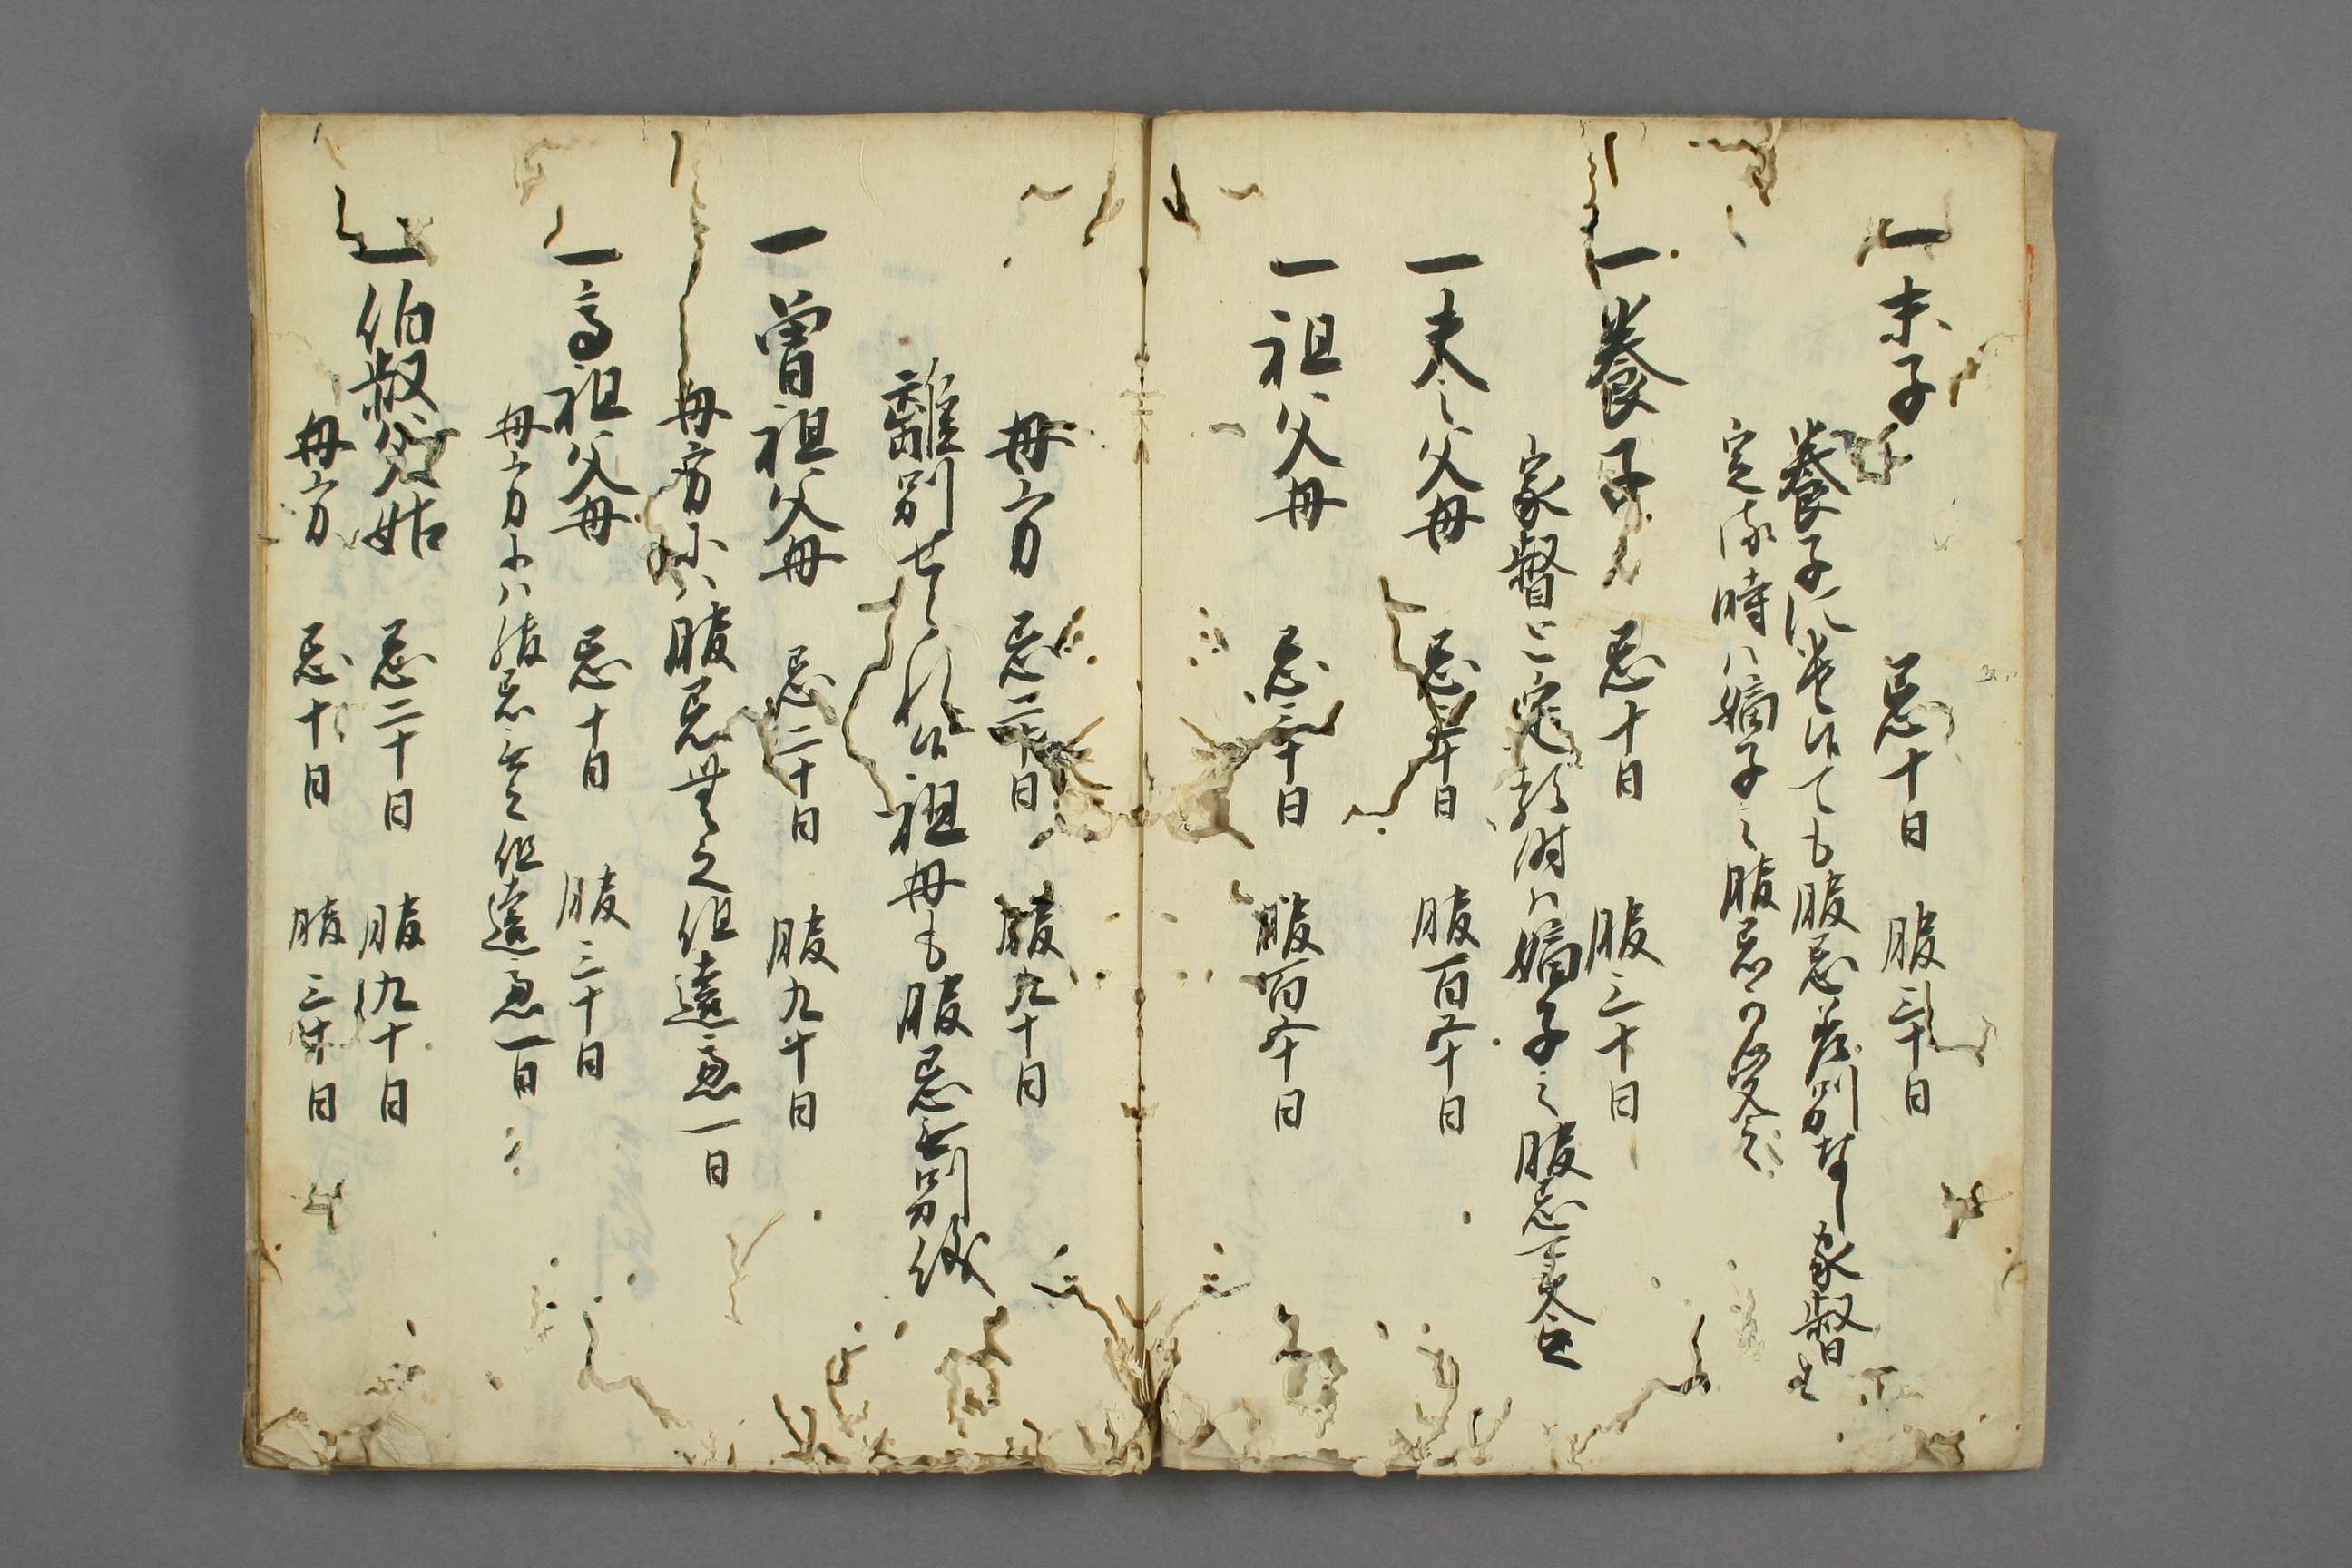 一末子　忌十日　服三十日
養子に遣候ても服忌差別なし家督と
定る時ハ嫡子之服忌可受之
一養子　忌十日　服三十日
家督と定・時ハ嫡子之服忌可受之
一夫之父母　忌三十日　服百五十日
一祖父母　忌三十日　服百五十日
母方　忌二十日　服九十日
離別せられ候祖母も服忌無別儀
一曽祖父母　忌二十日　服九十日
母方にハ服忌無之但遠慮一日
一高祖父母　忌十日　服三十日
母方にハ服忌無之但遠慮一日
一伯叔父姑　忌二十日　服九十日
母方　忌十日　服三十日